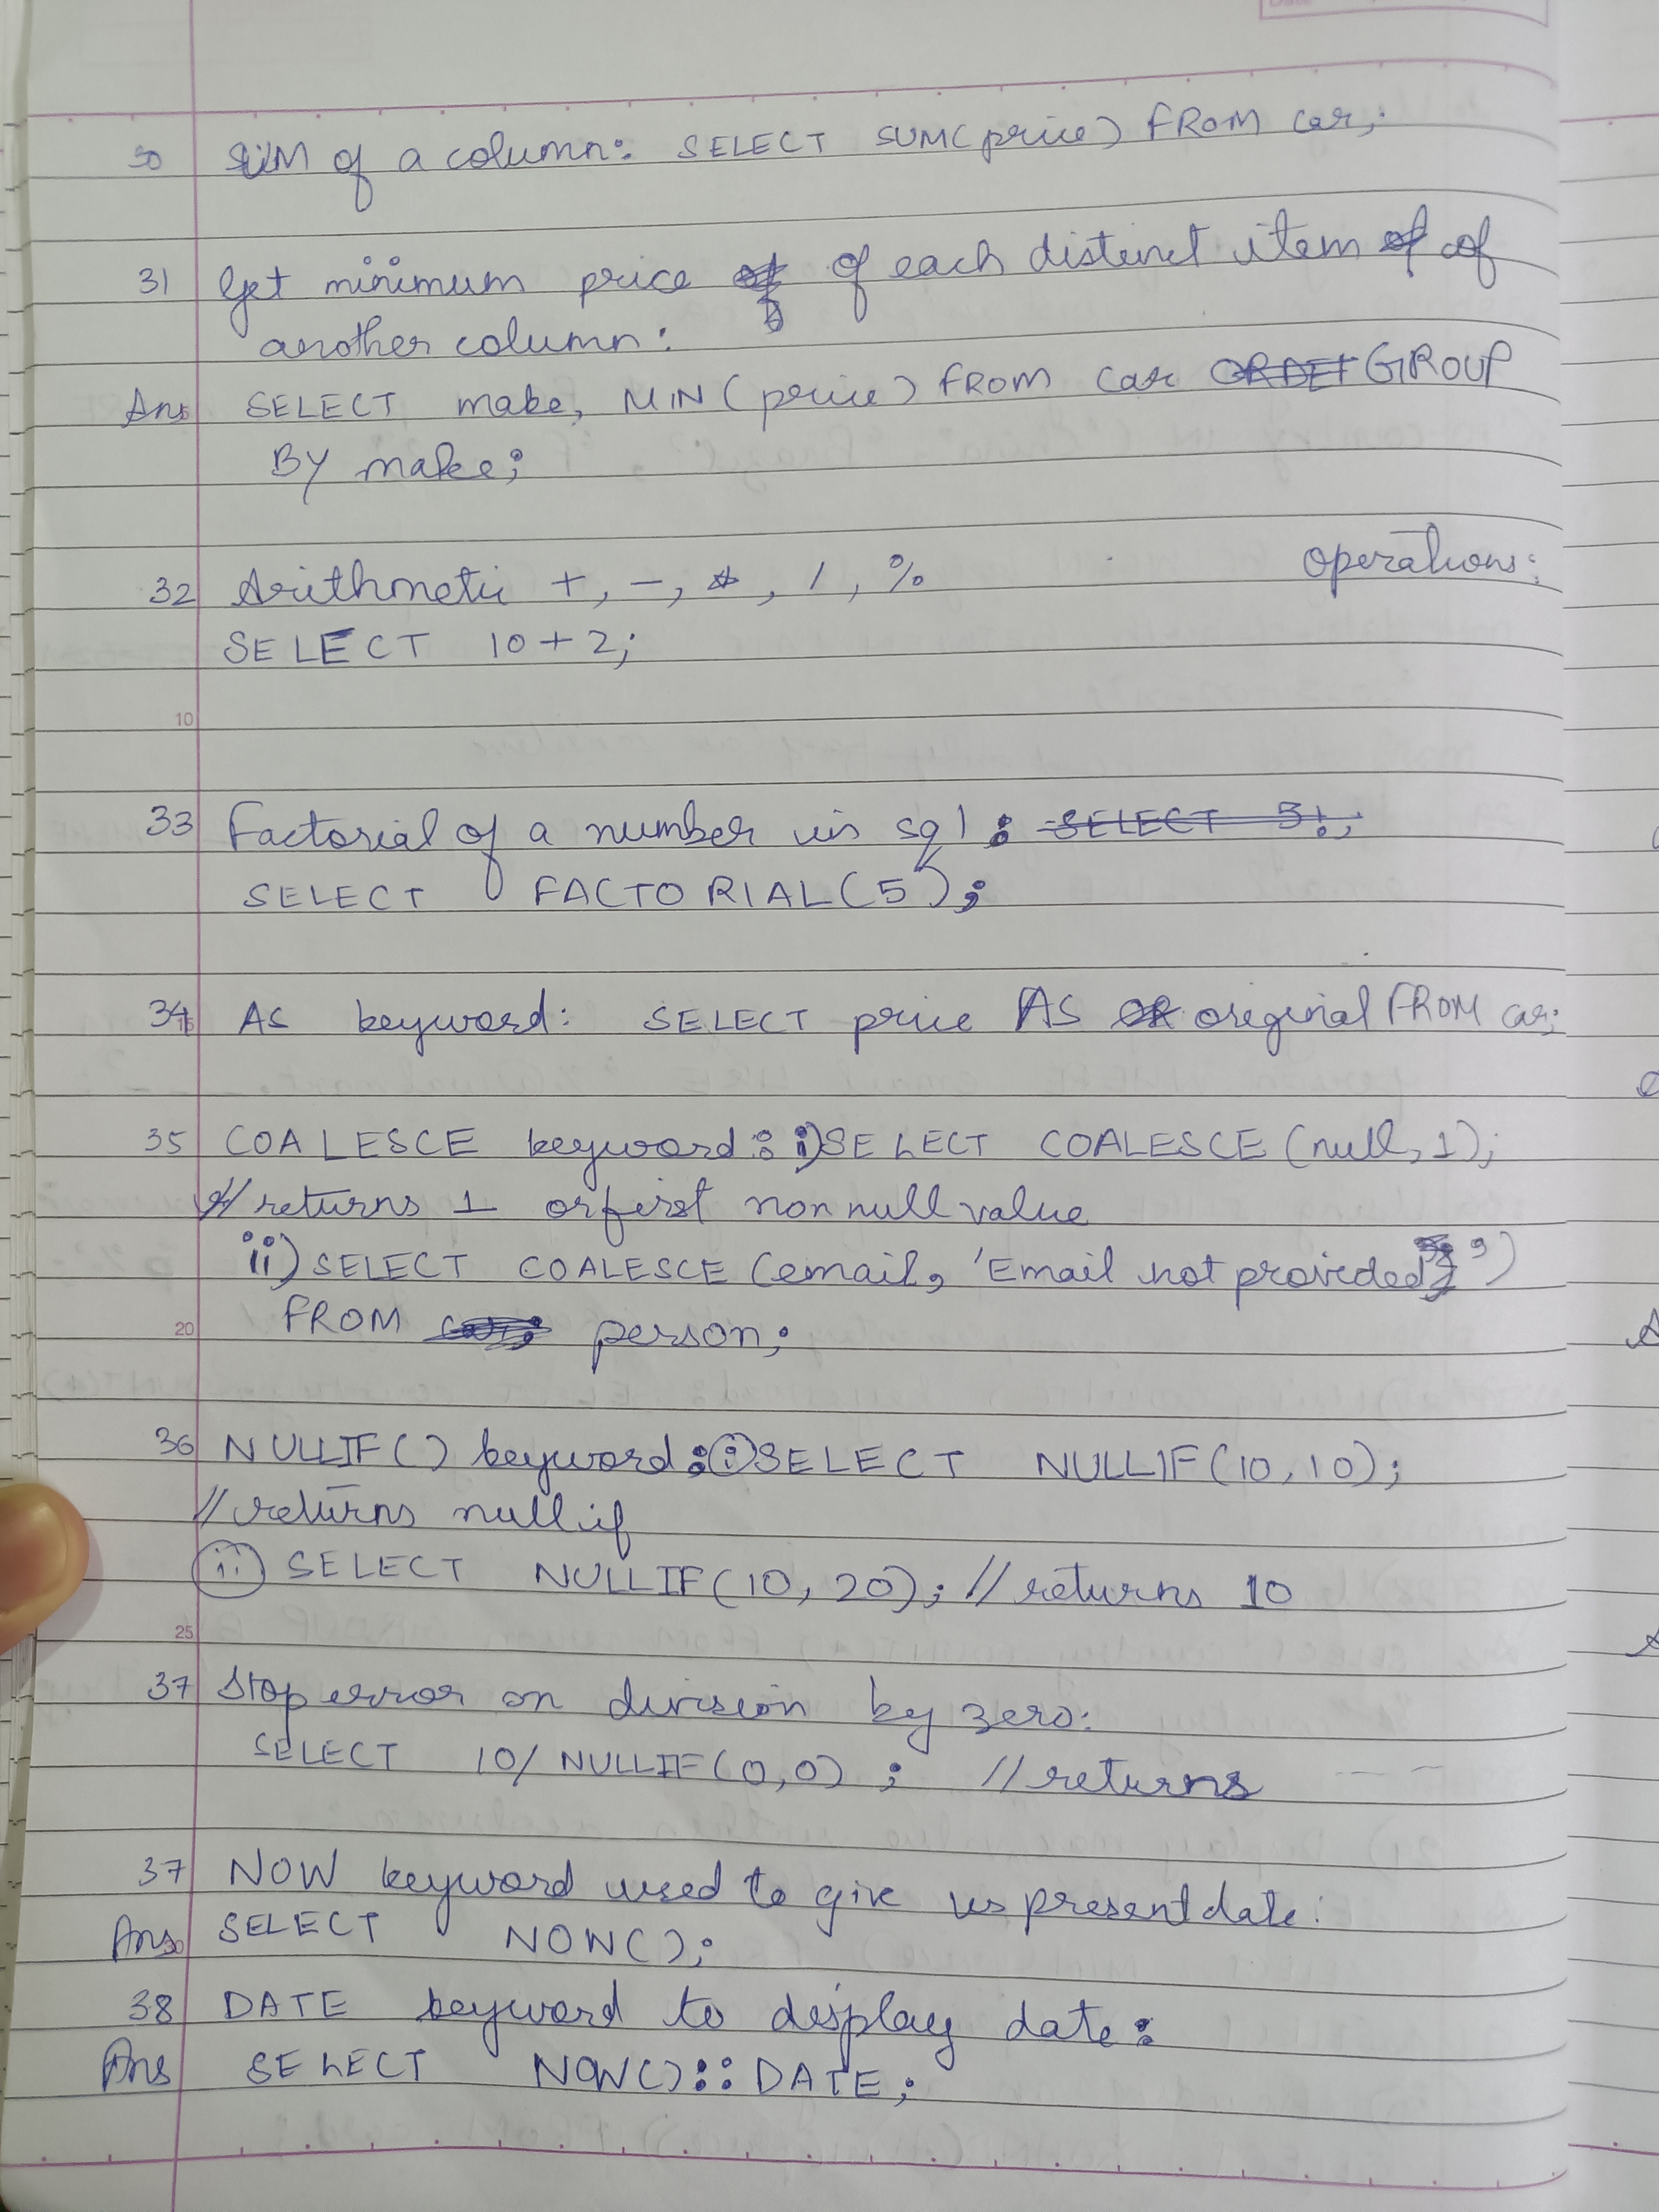 30 SUM of a column: SELECT SUM(price) FROM car;
31 Get minimum price of each distinct item of
another column:
Ans SELECT make, MIN(price) FROM car GROUP
BY make;
32 Arithmetic +, -, *, /, % operations:
SELECT 10+2;
10
33 Factorial of a number in sql: SELECT 5!;
SELECT FACTORIAL(5);
34 AS keyword: SELECT price AS original FROM car;
35 COALESCE keyword: i) SELECT COALESCE (null, 1);
// returns 1 or first non null value
ii) SELECT COALESCE (email, 'Email not provided')
20 FROM person;
36 NULLIF() keyword: i) SELECT NULLIF(10,10);
// returns null if
ii) SELECT NULLIF(10, 20); // returns 10
25
37 Stop error on division by zero:
SELECT 10/NULLIF(0,0); // returns
37 NOW keyword used to give us present date:
Ans SELECT NOW();
38 DATE keyword to display date:
Ans SELECT NOW()::DATE;